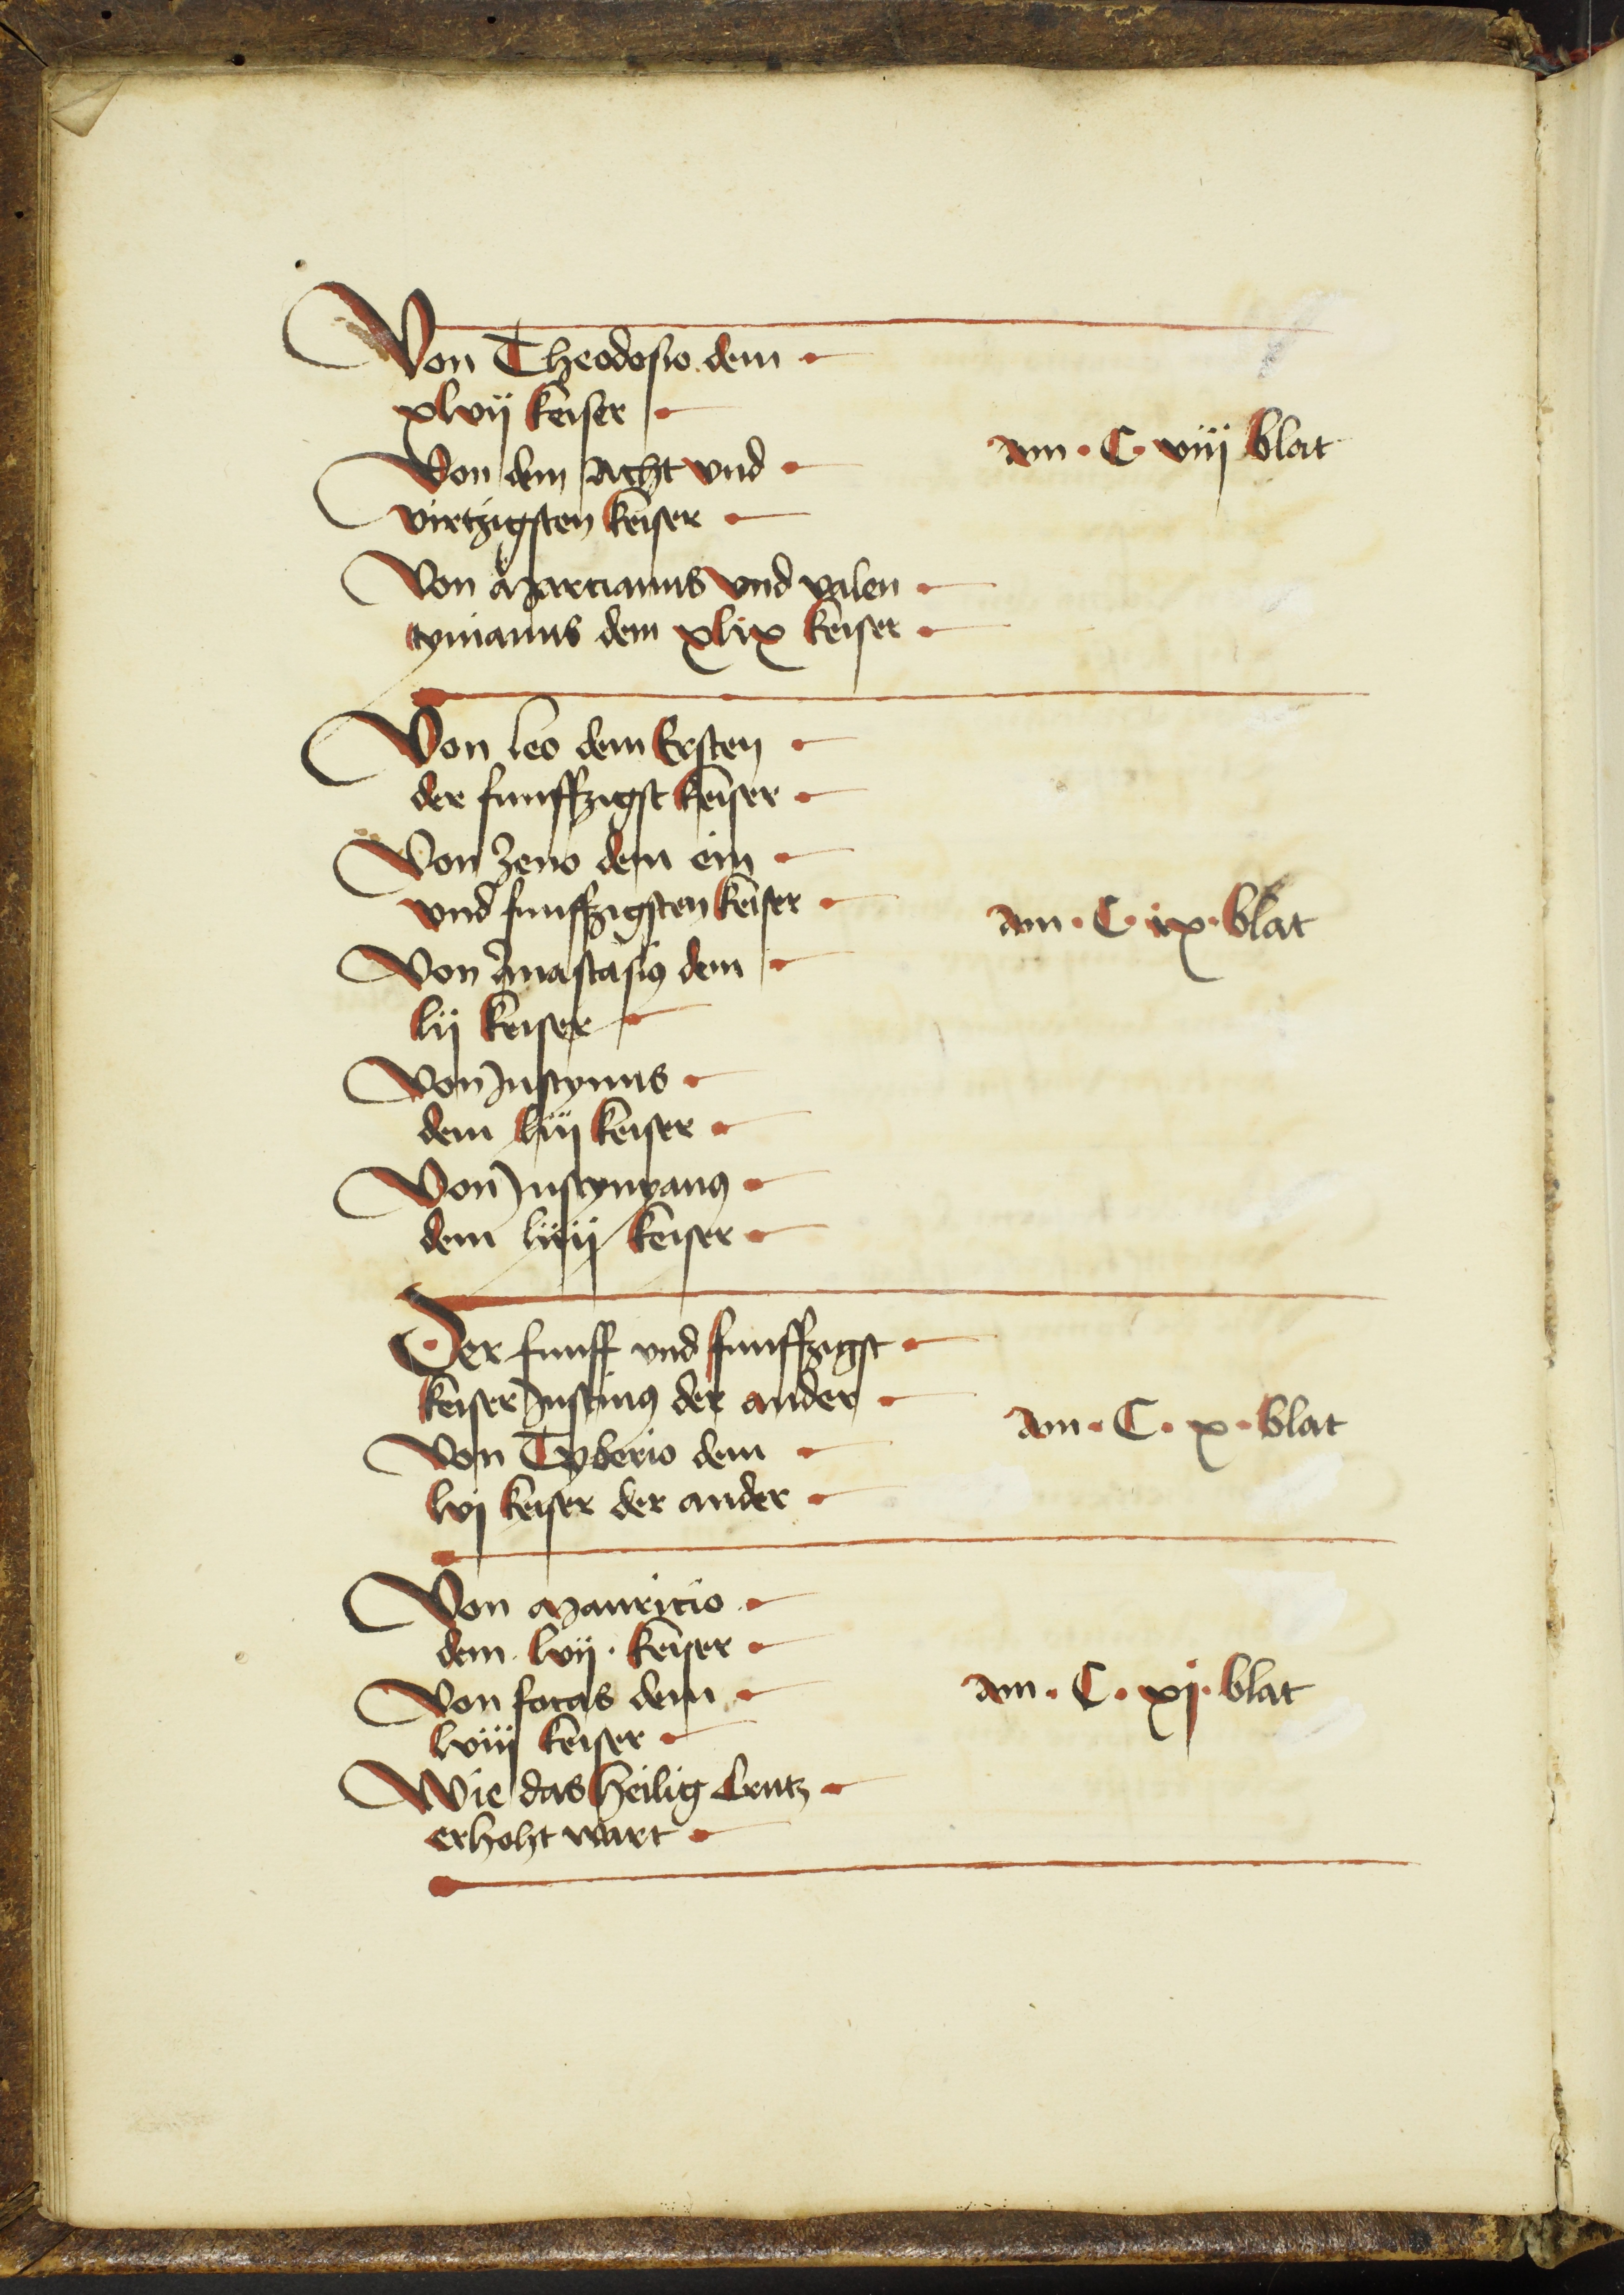 Von Theodosio dem
xlvij keiser
Von dem Acht vnd
virtzigsten keiser
am · C · viij blat
Von Marcianus vnd valen
tynianus dem xlix keiser
Von leo dem Ersten
der funffzigst keiser
Von Zeno dem ein
vnd funffzigsten keiser
am · C · ix · blat
Von Anastasiꝯ dem
lij keiser
Von Justynus
dem liij keiser
Von Justynyanꝯ
dem liiij keiser
Der funff vnd funffzigst
keiser Justinꝯ der ander
am · C · x · blat
Von Tyberio dem
lvj keiser der ander
Von Mauricio
dem · lvij · keiser
Von focas dem
am · C · xj · blat
lviij keiser
Wie das heilig Crutz
erhoht wart